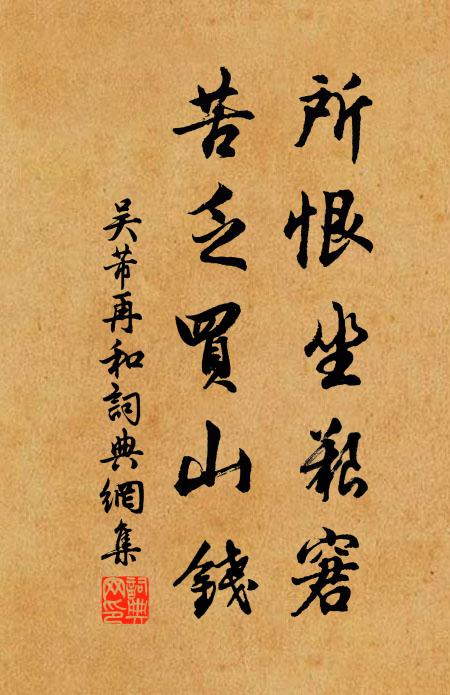 所恨坐艱窘
苦乏買山錢
吴芾再和詞典網集
詞典
网印